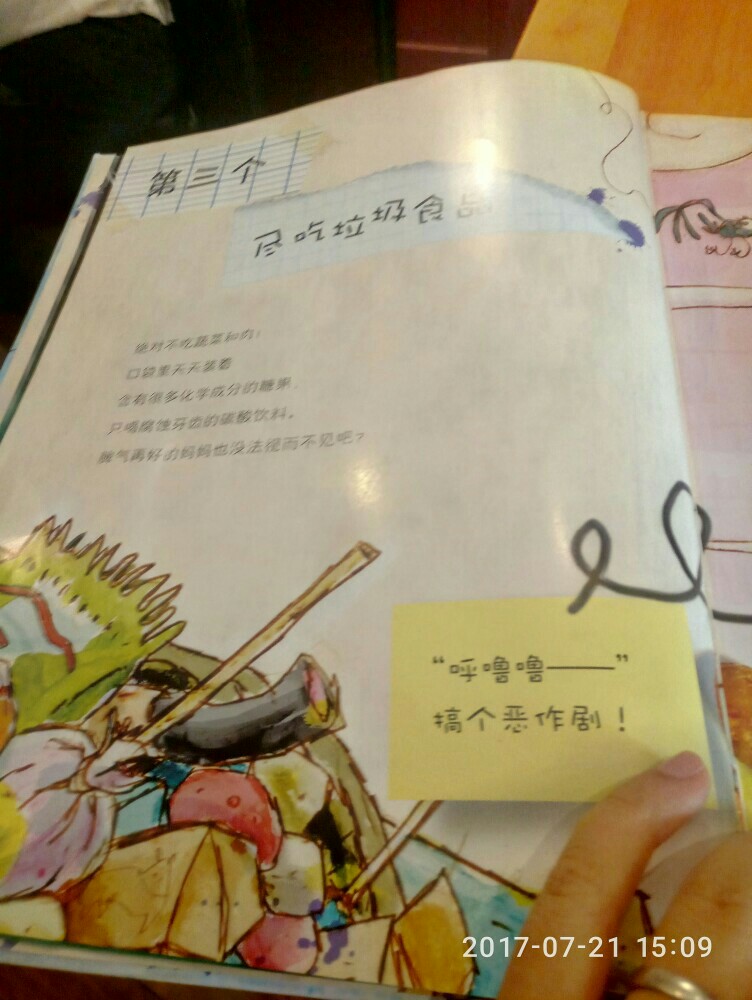 第三个
尽吃垃圾食品
绝对不吃蔬菜和肉！
口袋里天天装着
含有很多化学成分的糖果，
只喝腐蚀牙齿的碳酸饮料。
脾气再好的妈妈也没法视而不见吧？
“呼噜噜——”
搞个恶作剧！
2017-07-21 15:09